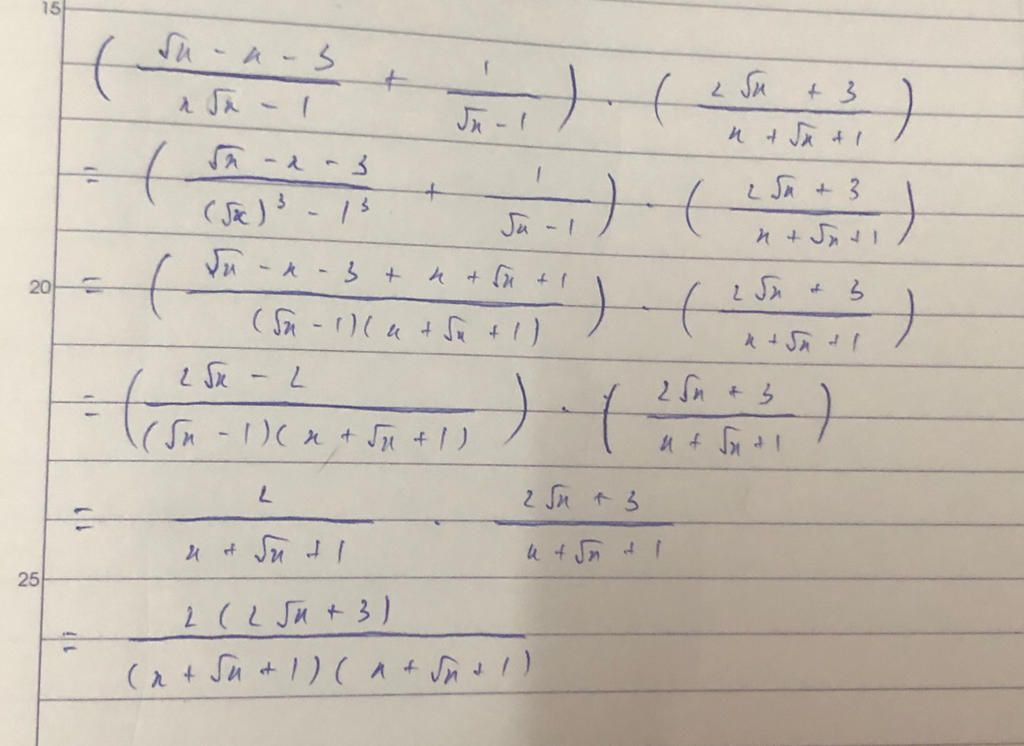 15
( (√x - x - 3)/(x√x - 1) + 1/(√x - 1) ) . ( (2√x + 3)/(x + √x + 1) )
= ( (√x - x - 3)/((√x)³ - 1³) + 1/(√x - 1) ) . ( (2√x + 3)/(x + √x + 1) )
20 = ( (√x - x - 3 + x + √x + 1)/((√x - 1)(x + √x + 1)) ) . ( (2√x + 3)/(x + √x + 1) )
= ( (2√x - 2)/((√x - 1)(x + √x + 1)) ) . ( (2√x + 3)/(x + √x + 1) )
= 2/(x + √x + 1) . (2√x + 3)/(x + √x + 1)
25
= 2(2√x + 3)/((x + √x + 1)(x + √x + 1))